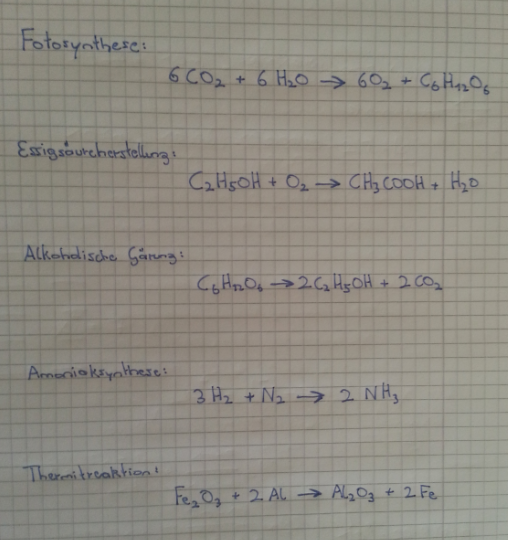 Fotosynthese:
6 CO2 + 6 H2O → 6O2 + C6H12O6
Essigsäureherstellung:
C2H5OH + O2 → CH3COOH + H2O
Alkoholische Gärung:
C6H12O6 → 2C2H5OH + 2CO2
Amoniaksynthese:
3 H2 + N2 → 2 NH3
Thermitreaktion:
Fe2O3 + 2 Al → Al2O3 + 2 Fe